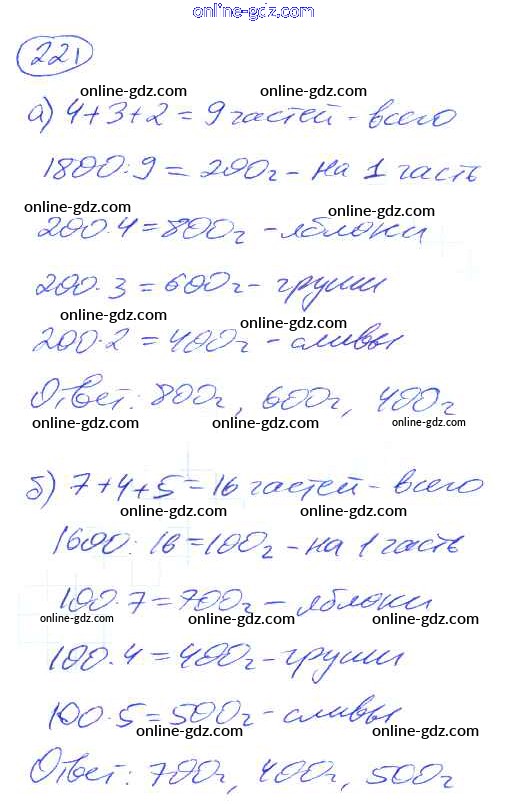 online-gdz.com
221
online-gdz.com online-gdz.com
а) 4+3+2=9 частей - всего
online-gdz.com online-gdz.com
1800:9=200г - на 1 часть
online-gdz.com online-gdz.com
200·4=800г - яблоки
200·3=600г - груши
online-gdz.com online-gdz.com
200·2=400г - сливы
Ответ: 800г, 600г, 400г
online-gdz.com online-gdz.com online-gdz.com
б) 7+4+5=16 частей - всего
online-gdz.com online-gdz.com
1600:16=100г - на 1 часть
100·7=700г - яблоки
online-gdz.com online-gdz.com online-gdz.com
100·4=400г - груши
100·5=500г - сливы
online-gdz.com online-gdz.com
Ответ: 700г, 400г, 500г
online-gdz.com online-gdz.com online-gdz.com